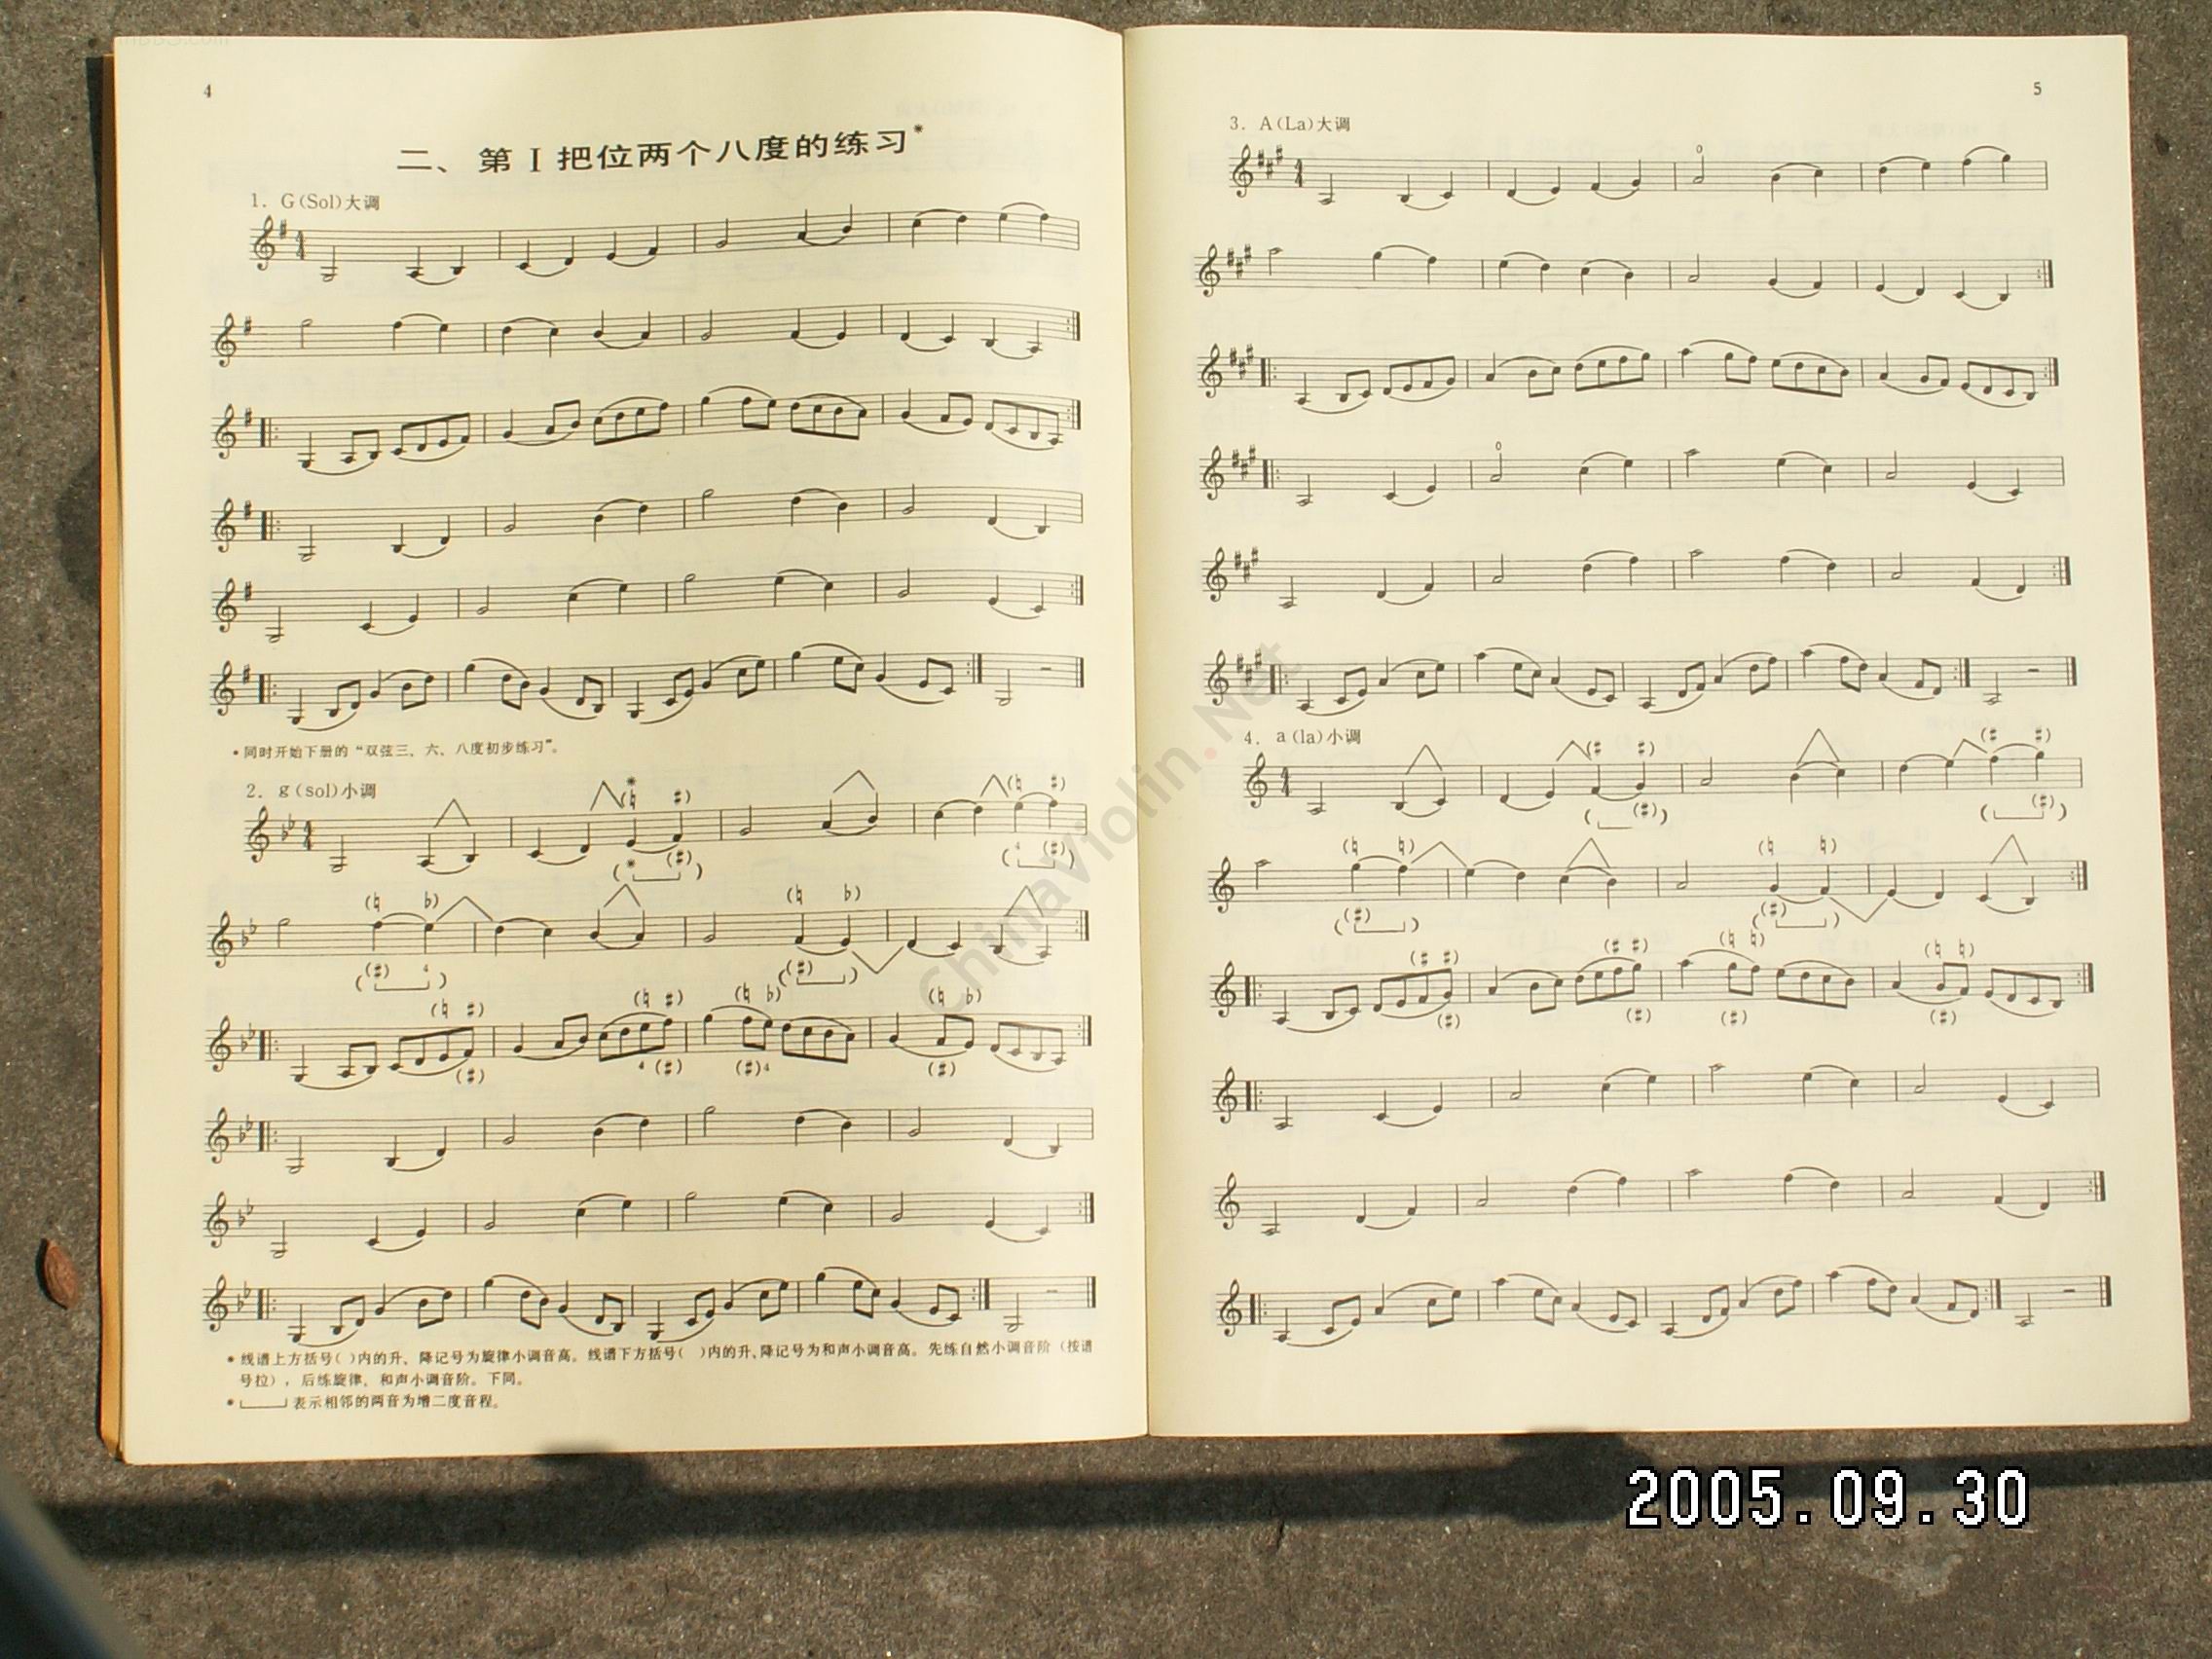 4
二、第 I 把位两个八度的练习*
1. G(Sol)大调
*同时开始下册的“双弦三、六、八度初步练习”。
2. g(sol)小调
*线谱上方括号( )内的升、降记号为旋律小调音高。线谱下方括号( )内的升、降记号为和声小调音高。先练自然小调音阶（按谱
号拉），后练旋律、和声小调音阶。下同。
*表示相邻的两音为增二度音程。
5
3. A(La)大调
4. a(la)小调
ChinaViolin.Net
2005.09.30